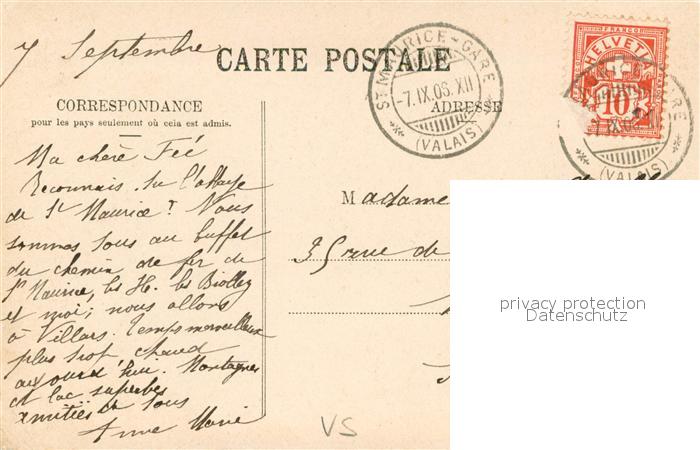 7 Septembre
CARTE POSTALE
ST MAURICE-GARE
-7.IX.06.XII
(VALAIS)
FRANCO
HELVETIA
10
(VALAIS)
CORRESPONDANCE
pour les pays seulement où cela est admis.
ADRESSE
Ma chère Fée
Reconnais tu l'abbaye
de St Maurice? Nous
sommes tous au buffet
du chemin de fer de
St Maurice, les H. les Biolley
et moi; nous allons
à Villars. Temps merveilleux
plus trop chaud
aujourd'hui. Montagnes
et lac superbes
amitiés à tous
Anne Marie
Madame
35 rue de
privacy protection
Datenschutz
VS